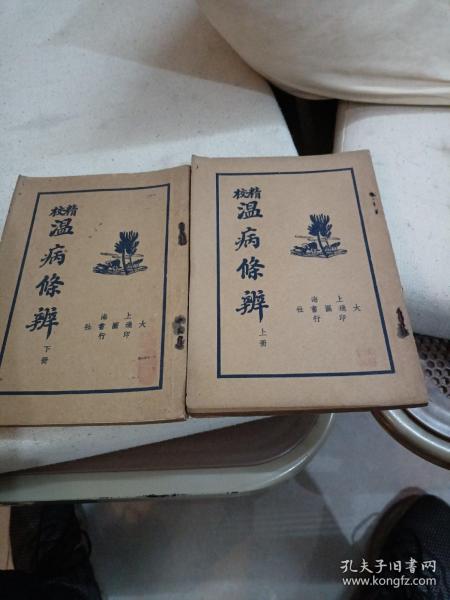 精校
温病條辨
上冊
上海
大通圖書社
印行
精校
温病條辨
下冊
上海
大通圖書社
印行
孔夫子旧书网
www.kongfz.com